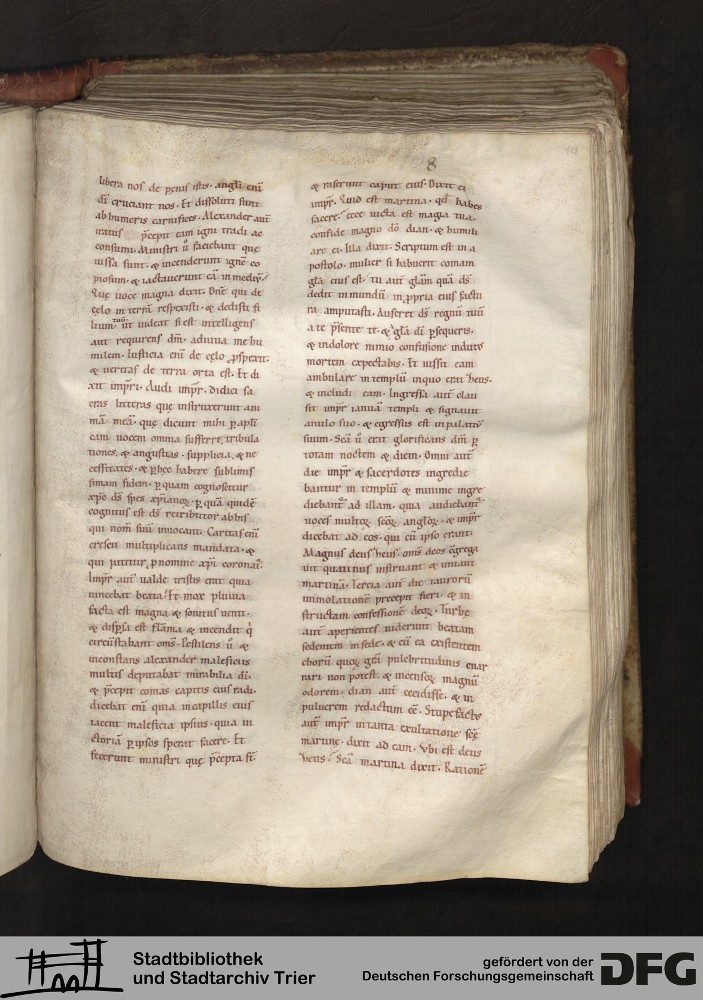 8
libera nos de penis istis. angli eni
di cruciant nos. Et dissoluti sunt
ab humeris carnifices. Alexander aut
iratus precepit eam igni tradi ac
consumi. Ministri u faciebant que
iussa sunt. & incenderunt igne co
piosum. & iactauerunt ea in mediu.
Que uoce magna dixit. Dne qui de
celo in terra respexisti. & dedisti fi
lium tuu. ut uideat si est intelligens
aut requirens dm. adiuua me hu
milem. Iusticia eni de celo pspexit.
& ueritas de terra orta est. Et di
xit impri. Audi impr. didici sa
cras litteras que instruxerunt ani
ma mea. que dicunt mihi p apli
eam uocem omnia sufferre. tribula
tiones. & angustias. supplicia. & ne
cessitates. & p hec habere sublimis
simam fidem. p quam cognoscitur
xpc ds spes xpianoz. p qua quide
cognitus est ds retributor ab his
qui nom suu inuocant. Caritas eni
crescit multiplicans mandata. &
qui patitur p nomine xpi coronat.
Impr aut ualde tristis erat quia
uincebat beata. Et mox pluuia
facta est magna & sonitus uenti.
& dispsa est flama & incendit q
circustabant oms. Pestilens u &
inconstans alexander maleficiis
multis deputabat mirabilia di.
& pcepit comas capitis eius radi.
dicebat eni quia in capillis eius
iacent maleficia ipsius. quia in
ctoria p ipsos sperat facere. Et
fecerunt ministri que pcepta st.
& raserunt caput eius. Dixit ei
impr. Quid est martina. qd habes
facere. ecce uicta est magia tua.
confide magno do dian. & humili
are ei. Illa dixit. Scriptum est in a
postolo. mulier si habuerit comam
gla eius est. tu aut glam qua ds
dedit in mundu in ppria eius factu
ra amputasti. Auferet ds regnu tuu
a te psente te. & gla di psequeris.
& in dolore nimio confusione indutus
mortem expectabis. Et iussit eam
ambulare in templu in quo erat heus.
& includi eam. Ingressa aut clau
sit impr ianua templi & signauit
anulo suo. & egressus est in palatiu
suum. Sca u erat glorificans dm p
totam noctem & diem. Omni aut
die impr & sacerdotes ingredie
bantur in templu & minime ingre
diebant ad illam. quia audiebant
uoces multoz scoz angloz. & impr
dicebat ad eos. qui cu ipso erant.
Magnus deus heus. oms deos cgrega
uit quatinus instruant & uniant
martina. Tercia aut die tauroru
immolatione precepit fieri. & in
structam confessione deoz. Turbe
aut aperientes uiderunt beatam
sedentem in sede. & cu ea existentem
choru quoz gra pulchritudinis enar
rari non potest. & incensoz magnu
odorem. dian aut cecidisse. & in
puluerem redactum ee. Stupefactus
aut impr in tanta exultatione sce
martine. dixit ad eam. Vbi est deus
heus. Sca martina dixit. Ratione
Stadtbibliothek
und Stadtarchiv Trier
gefördert von der
Deutschen Forschungsgemeinschaft
DFG